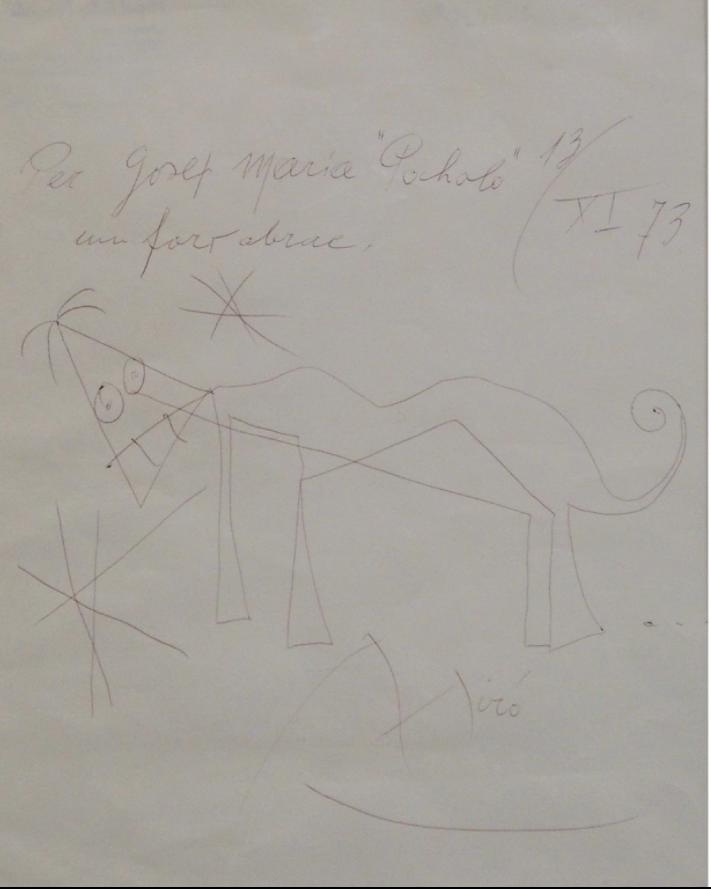 Per Josep Maria "Pocholo" 13/
XI 73
um fort abrac.
Miró